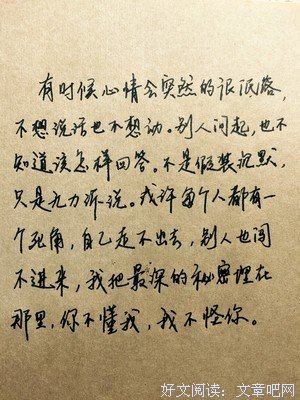 有时候心情会突然的很低落，
不想说话也不想动。别人问起，也不
知道该怎样回答。不是假装沉默，
只是无力诉说。或许每个人都有一
个死角，自己走不出去，别人也闯
不进来，我把最深的秘密埋在
那里，你不懂我，我不怪你。
好文阅读：文章吧网